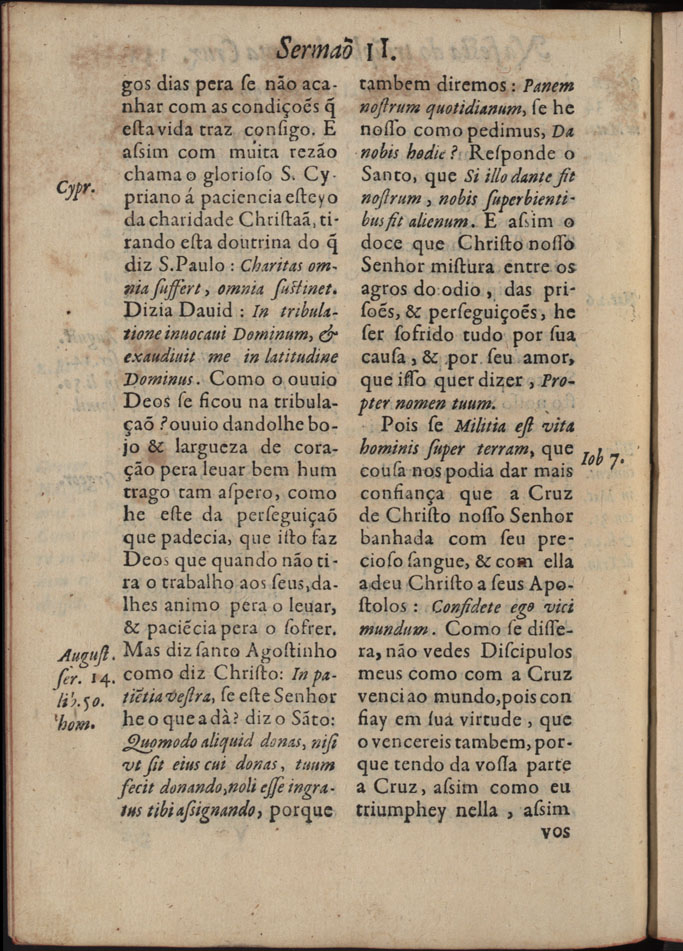 Sermaõ II.
gos dias pera ſe não aca-
nhar com as condiçoẽs q̃
eſta vida traz conſigo. E
aſsim com muita rezão
chama o glorioſo S. Cy-
Cypr.
priano á paciencia eſteyo
da charidade Chriſtaã, ti-
rando eſta doutrina do q̃
diz S. Paulo : Charitas om-
nia ſuffert, omnia ſuſtinet.
Dizia Dauid : In tribula-
tione inuocaui Dominum, &
exaudiuit me in latitudine
Dominus. Como o ouuio
Deos ſe ficou na tribula-
çaõ ? ouuio dandolhe bo-
jo & largueza de cora-
ção pera leuar bem hum
trago tam aſpero, como
he eſte da perſeguiçaõ
que padecia, que iſto faz
Deos que quando não ti-
ra o trabalho aos ſeus, da-
lhes animo pera o leuar,
& paciẽcia pera o ſofrer.
Mas diz ſanto Agoſtinho
Auguſt.
ſer. 14.
lib. 50.
hom.
como diz Chriſto: In pa-
tiẽtia veſtra, ſe eſte Senhor
he o que a dà? diz o Sãto:
Quomodo aliquid donas, niſi
vt ſit eius cui donas, tuum
fecit donando, noli eſſe ingra-
tus tibi aſsignando, porque
tambem diremos : Panem
noſtrum quotidianum, ſe he
noſſo como pedimus, Da
nobis hodie ? Reſponde o
Santo, que Si illo dante fit
noſtrum, nobis ſuperbienti-
bus fit alienum. E aſsim o
doce que Chriſto noſſo
Senhor miſtura entre os
agros do odio, das pri-
ſoẽs, & perſeguiçoẽs, he
ſer ſofrido tudo por ſua
cauſa, & por ſeu amor,
que iſſo quer dizer, Pro-
pter nomen tuum.
Pois ſe Militia eſt vita
hominis ſuper terram, que
Iob 7.
couſa nos podia dar mais
confiança que a Cruz
de Chriſto noſſo Senhor
banhada com ſeu pre-
cioſo sangue, & com ella
a deu Chriſto a ſeus Apo-
ſtolos : Confidete ego vici
mundum. Como ſe diſſe-
ra, não vedes Diſcipulos
meus como com a Cruz
venci ao mundo, pois con
fiay em ſua virtude, que
o vencereis tambem, por-
que tendo da voſſa parte
a Cruz, aſsim como eu
triumphey nella, aſsim
vos